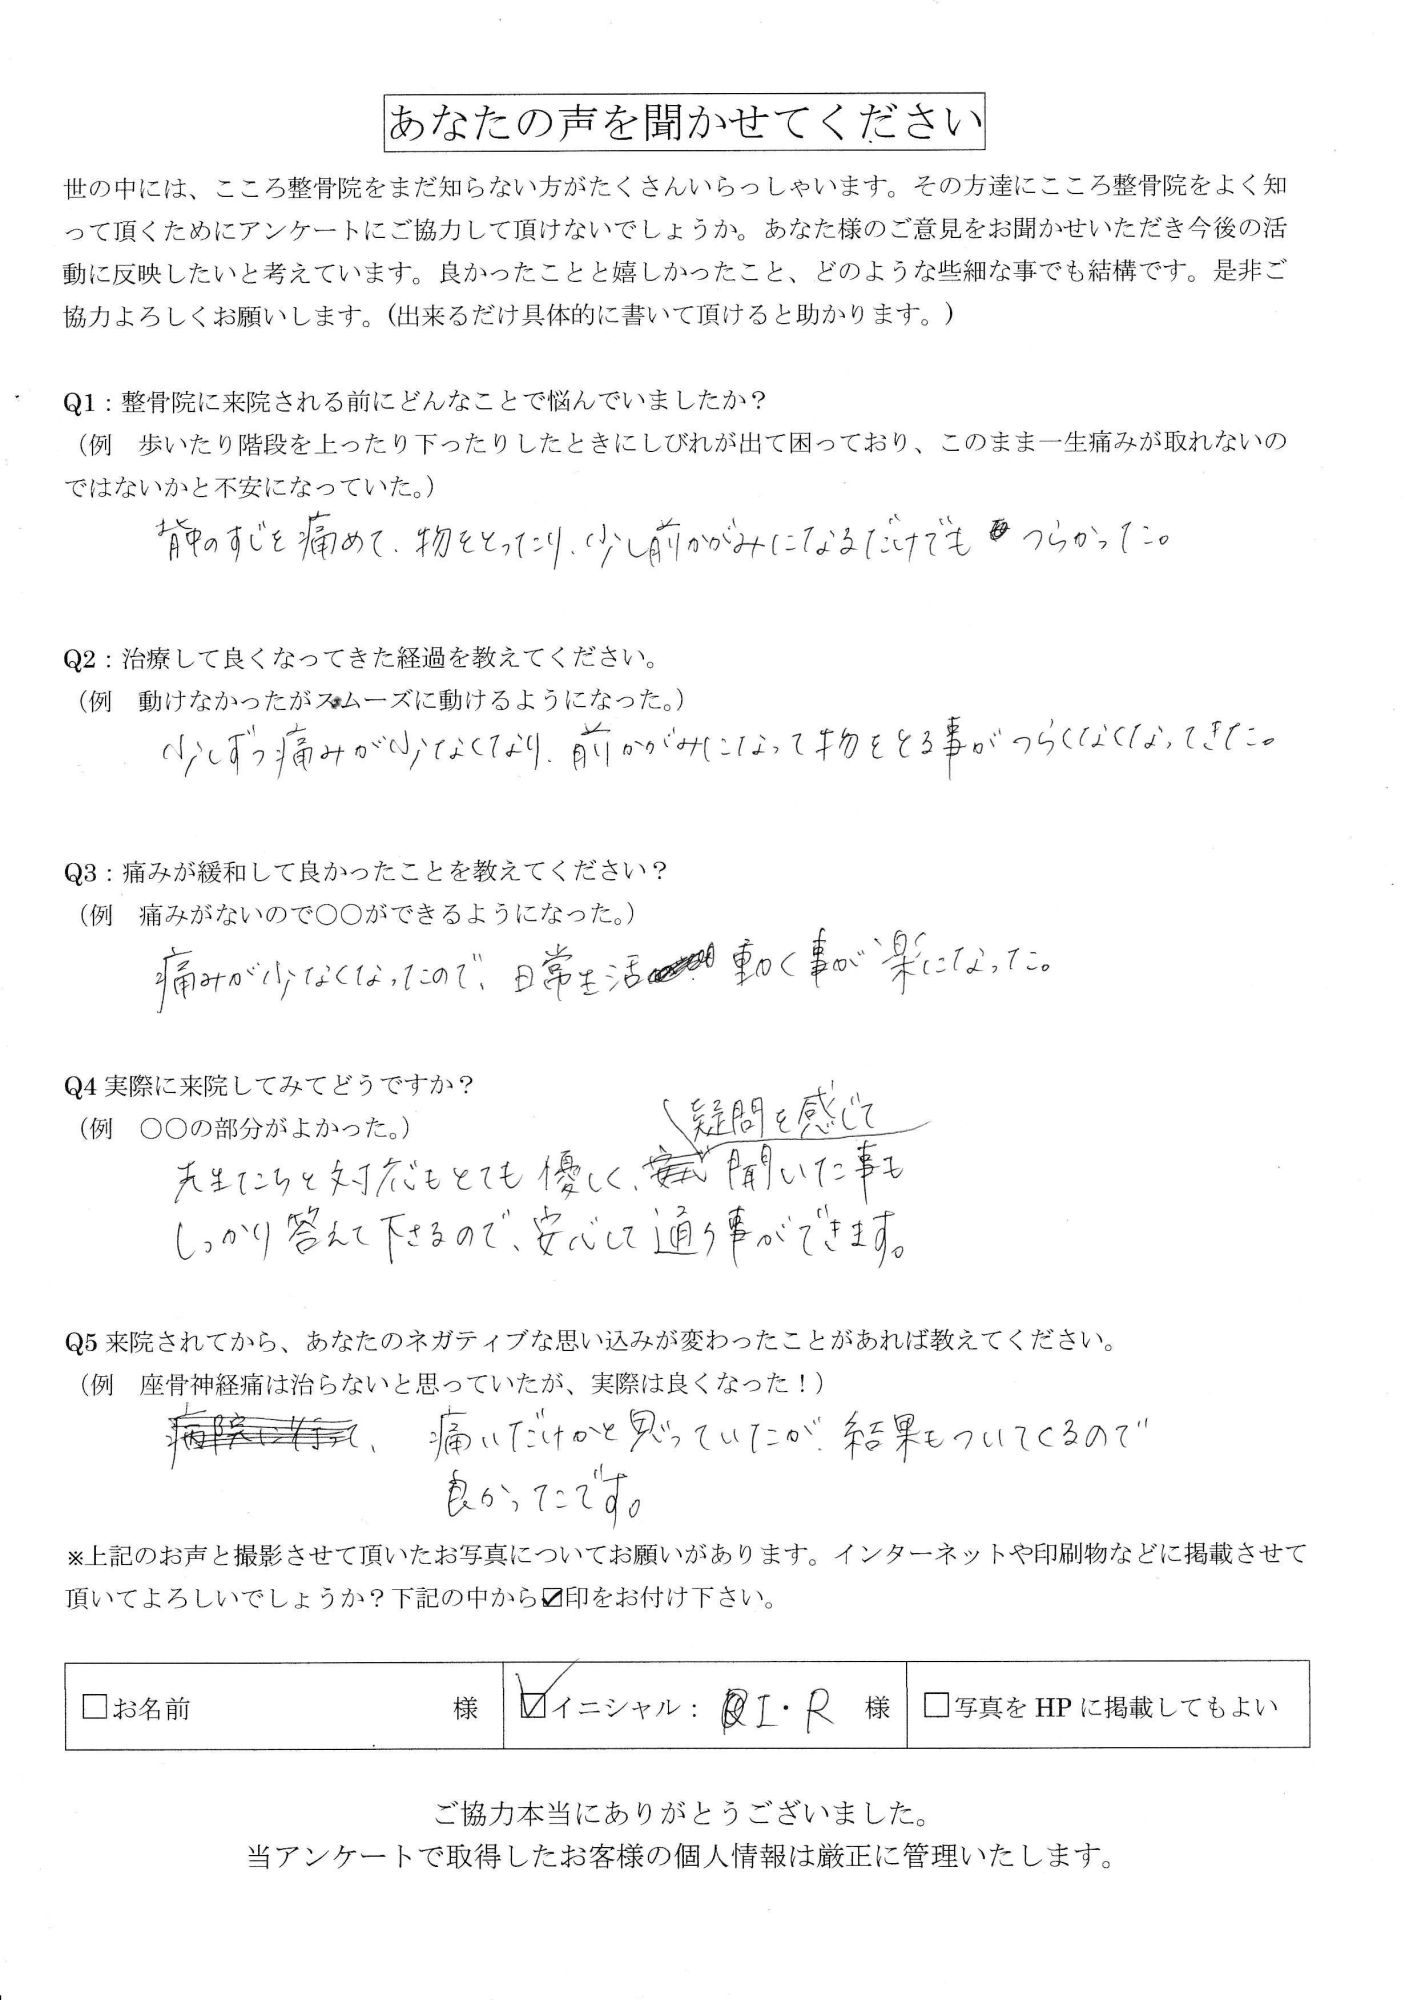 あなたの声を聞かせてください
世の中には、こころ整骨院をまだ知らない方がたくさんいらっしゃいます。その方達にこころ整骨院をよく知
って頂くためにアンケートにご協力して頂けないでしょうか。あなた様のご意見をお聞かせいただき今後の活
動に反映したいと考えています。良かったことと嬉しかったこと、どのような些細な事でも結構です。是非ご
協力よろしくお願いします。(出来るだけ具体的に書いて頂けると助かります。)
Q1：整骨院に来院される前にどんなことで悩んでいましたか？
（例　歩いたり階段を上ったり下ったりしたときにしびれが出て困っており、このまま一生痛みが取れないの
ではないかと不安になっていた。）
背中のすじを痛めて、物をとったり、少し前かがみになるだけでもつらかった。
Q2：治療して良くなってきた経過を教えてください。
（例　動けなかったがスムーズに動けるようになった。）
少しずつ痛みが少なくなり、前かがみになって物をとる事がつらくなくなってきた。
Q3：痛みが緩和して良かったことを教えてください？
（例　痛みがないので〇〇ができるようになった。）
痛みが少なくなったので、日常生活動く事が楽になった。
Q4 実際に来院してみてどうですか？
（例　〇〇の部分がよかった。）
疑問を感じて
先生たちと対応もとても優しく、聞いた事も
しっかり答えて下さるので、安心して通う事ができます。
Q5 来院されてから、あなたのネガティブな思い込みが変わったことがあれば教えてください。
（例　座骨神経痛は治らないと思っていたが、実際は良くなった！）
病院に行って、痛いだけかと思っていたが、結果もついてくるので
良かったです。
※上記のお声と撮影させて頂いたお写真についてお願いがあります。インターネットや印刷物などに掲載させて
頂いてよろしいでしょうか？下記の中から☑印をお付け下さい。
□お名前　様　☑イニシャル： I・R 様　□写真を HP に掲載してもよい
ご協力本当にありがとうございました。
当アンケートで取得したお客様の個人情報は厳正に管理いたします。